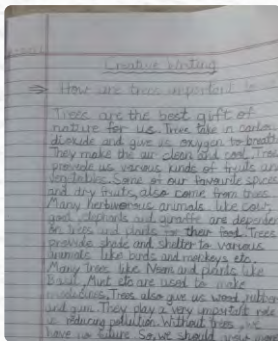 Creative Writing
⇒ How are trees important to
Trees are the best gift of
nature for us. Trees take in carbon
dioxide and give us oxygen to breath
They make the air clean and cool. Trees
provide us various kinds of fruits and
Some of our favourite spices
and dry fruits, also come from trees
Many herbivorous animals like cow,
goat, elephants and giraffe are depende
on trees and plants for their food. Trees
provide shade and shelter to various
animals like birds and monkeys etc.
Many Trees like Neem and plants like
Basil, Mint etc are used to make
medicines, Trees also give us wood, rubber
and gum. They play a very important role
in reducing pollution. Without trees, we
have no future. So, we should